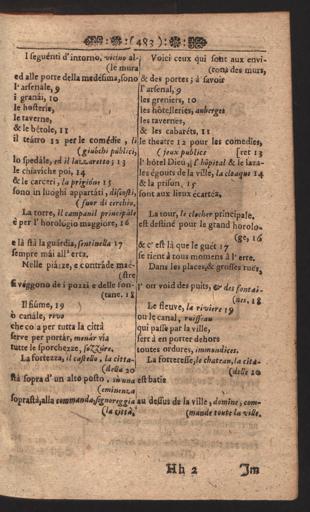 (483)
I seguénti d'intorno, vicino al-
(le mura
ed alle porte della medésima, sono
l'arsenale, 9
i granái, 10
le hosterie,
le taverne,
& le bétole, 11
il teátro 12 per le comédie, li
(giuóchi públici,
lo spedále, ed il lazzaretto; 13
le chiáviche poi, 14
& le carceri, la prigióne 15
sono in luoghi appartáti, discosti,
(fuor di circhio,
La torre, il campanil principále
é per l'horológio maggiore, 16
e là stà la guárdia, sentinella 17
sempre mái all'erta.
Nelle piázze, e contráde mae-
(stre
si véggono de i pozzi e delle fon-
(tane. 18
Il fiúme, 19
ò canále, rivo
che co à per tutta la città
serve per portár, menár via
tutte le sporchezze, sozzúre.
La fortezza, il castello, la citta-
(della 20
stà sopra d'un alto posto, in una
(eminenza
soprastà, alla commanda, signoreggia
(la città,
Voici ceux qui sont aux envi-
(rons des murs,
& des portes; à savoir
l'arsenal, 9
les greniers, 10
les hôtelleries, auberges
les tavernes,
& les cabaréts, 11
le theatre 12 pour les comedies,
(jeux publics
[ret 13
l'hôtel Dieu, l'hôpital & le laza-
les égouts de la ville, la cloaque 14
& la prison, 15
sont aux lieux écartéz.
La tour, le clocher principale,
est destiné pour le grand horolo-
(ge, 16
& c'est là que le guét 17
se tient à tous momens à l'erte.
Dans les places, & grosses rues,
l'on void des puits, & des fontai-
(nes. 18
Le fleuve, la riviere 19
ou le canal, ruisseau
qui passe par la ville,
sert à en porter dehors
toutes ordures, immundices.
La forteresse, le chateau, la cita-
(delle 20
est batie
au dessus de la ville, domine, com-
(mande toute la ville.
Hh 2
Im